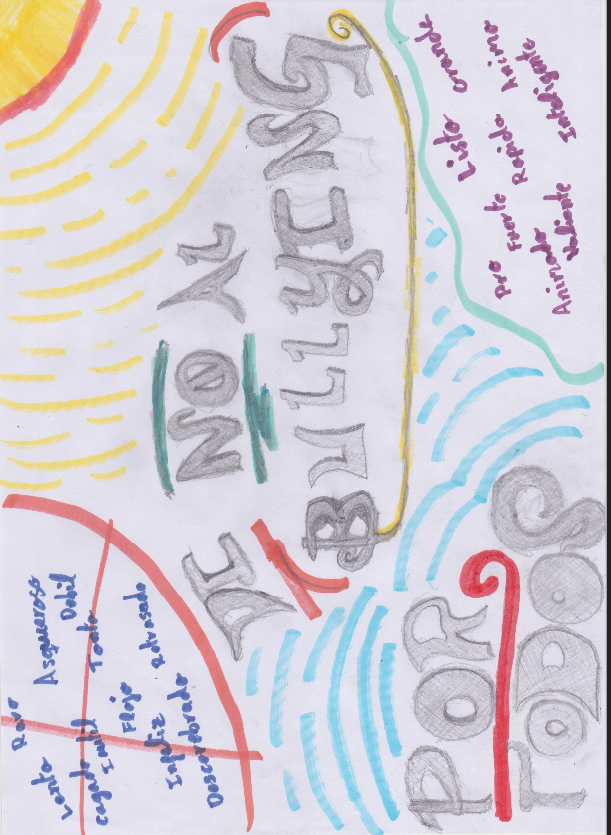 DI NO AL
BULLYING
POR
TODOS
Raro
Asqueroso
Lento
Debil
Tonto
Inutil
Flojo
Retrasado
Infeliz
Grande
Listo
Pro
Fuerte
Rapido
Animado
Valiente
Inteligente